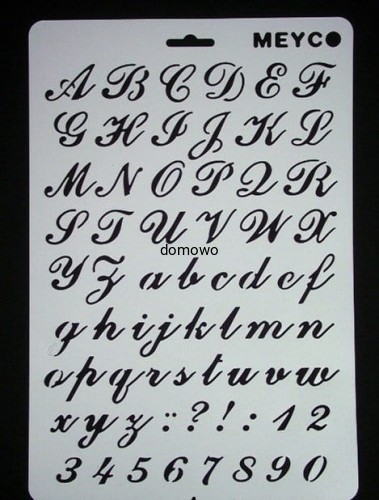 MEYCO
A B C D E F
G H I J K L
M N O P Q R
S T U V W X
domowo
Y Z a b c d e f
g h i j k l m n
o p q r s t u v w
x y z ¨ ? ! : 1 2
3 4 5 6 7 8 9 0